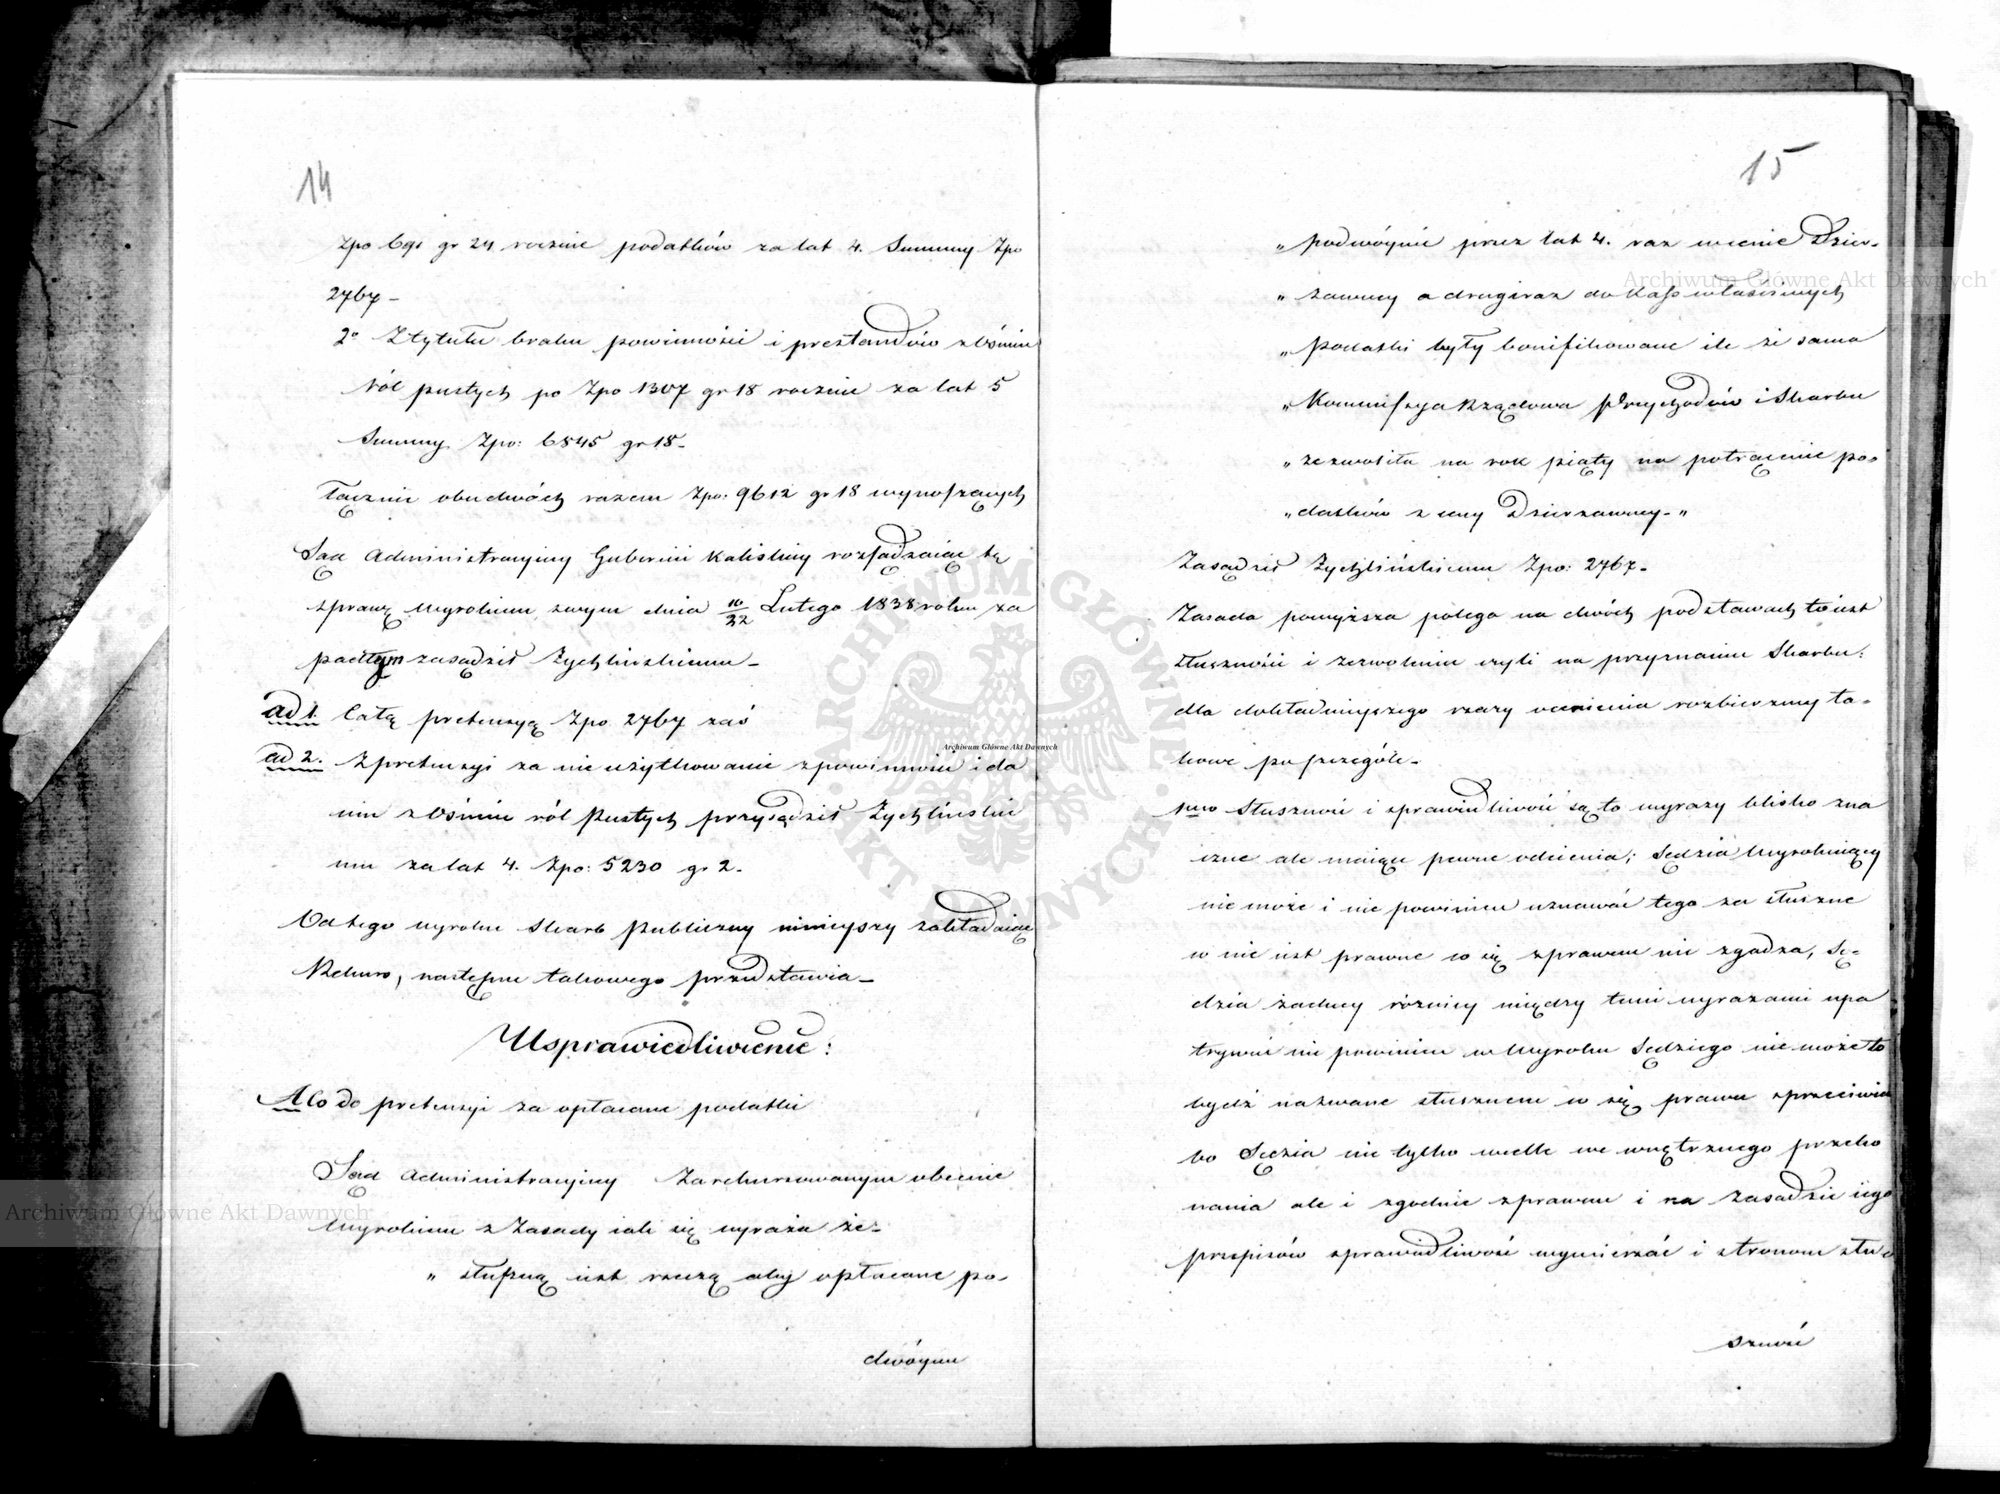 14
Zpo 691 gr 24 rocznie podatków za lat 4. Summy Zpo
2767 –
2o Z tytułu braku powinności i prestandów z Ośmiu
ról pustych po Zpo 1307 gr 18 rocznie za lat 5
Summy Zpo: 6845 gr 18 –
łącznie obudwóch razem Zpo: 9612 gr 18 wynoszących
Sąd Administracyiny Gubernii Kaliskiey rozsądzaiąc tę
sprawę Wyrokiem swym dnia 10/22 Lutego 1838 roku za
padłym zasądził Żychlińskiemu –
ad 1. Całą pretensyą Zpo 2767 zaś
ad 2. Z pretensyi za nie użytkowanie z powinności i da
nin z Ośmiu ról Pustych przysądził Żychlińskie
mu za lat 4. Zpo: 5230 gr 2.
Od tego wyroku Skarb Publiczny ninieyszy zakładaiąc
Rekurs, następne takowego przedstawia –
Usprawiedliwienie:
A Co do pretensyi za opłacone podatki
Sąd Administracyiny Zarekursowanym obecnie
Wyrokiem z Zasady iak się wyraża że –
„ słuszną iest rzeczą aby opłacone po-
dwóynie
15
„ podwóynie przez lat 4. raz w cenie Dzier-
„ żawney a drugi raz do Kass właściwych
„ podatki były bonifikowane ile że sama
„ Kommissya Rządowa Przychodów i Skarbu
„ zezwoliła na rok piąty na potrącenie po-
„ datków z ceny Dzierżawney – „
Zasądził Żychlińskiemu Zpo: 2767 –
Zasada powyższa polega na dwóch podstawach to iest
słuszności i zezwoleniu czyli na przyznaniu Skarbu:
dla dokładnieyszego rzeczy ocenienia rozbierzmy ta-
kowe po szczególe –
1mo Słuszność i sprawiedliwość są to wyrazy blisko zna
czne ale maiące pewne odcienia; Sędzia Wyrokuiący
nie może i nie powinien uznawać tego za słuszne
co nie iest prawne co się z prawem nie zgadza, Sę-
dzia żadney różnicy między temi wyrazami upa
trywać nie powinien w Wyroku Sędziego nie może to
bydź nazwane słusznem co się prawu sprzeciwia
bo Sędzia nie tylko wedle we wnętrznego przeko
nania ale i zgodnie z prawem i na zasadzie iego
przepisów sprawiedliwość wymierzać i stronom słu-
szność
Archiwum Główne Akt Dawnych
Archiwum Główne Akt Dawnych
Archiwum Główne Akt Dawnych
ARCHIWUM GŁÓWNE AKT DAWNYCH